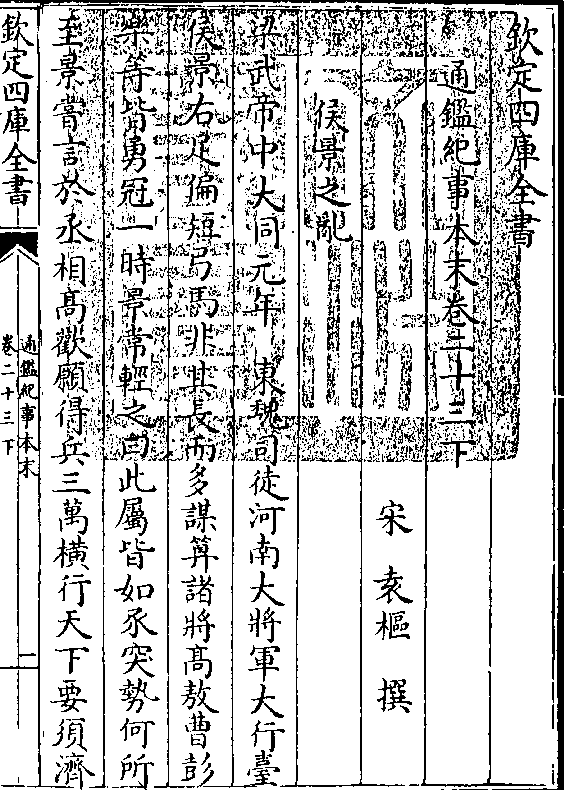 欽定四庫全書
通鑑紀事本末卷二十三下
宋 袁樞 撰
侯景之亂
梁武帝中大同元年 東魏司徒河南大將軍大行臺
侯景右足偏短弓馬非其長而多謀算諸將髙敖曹彭
樂等皆勇冠一時景常輕之曰此屬皆如豕突勢何所
至景嘗言於丞相髙歡願得兵三萬橫行天下要須濟
欽定四庫全書
通鑑紀事本末
卷二十三下
一